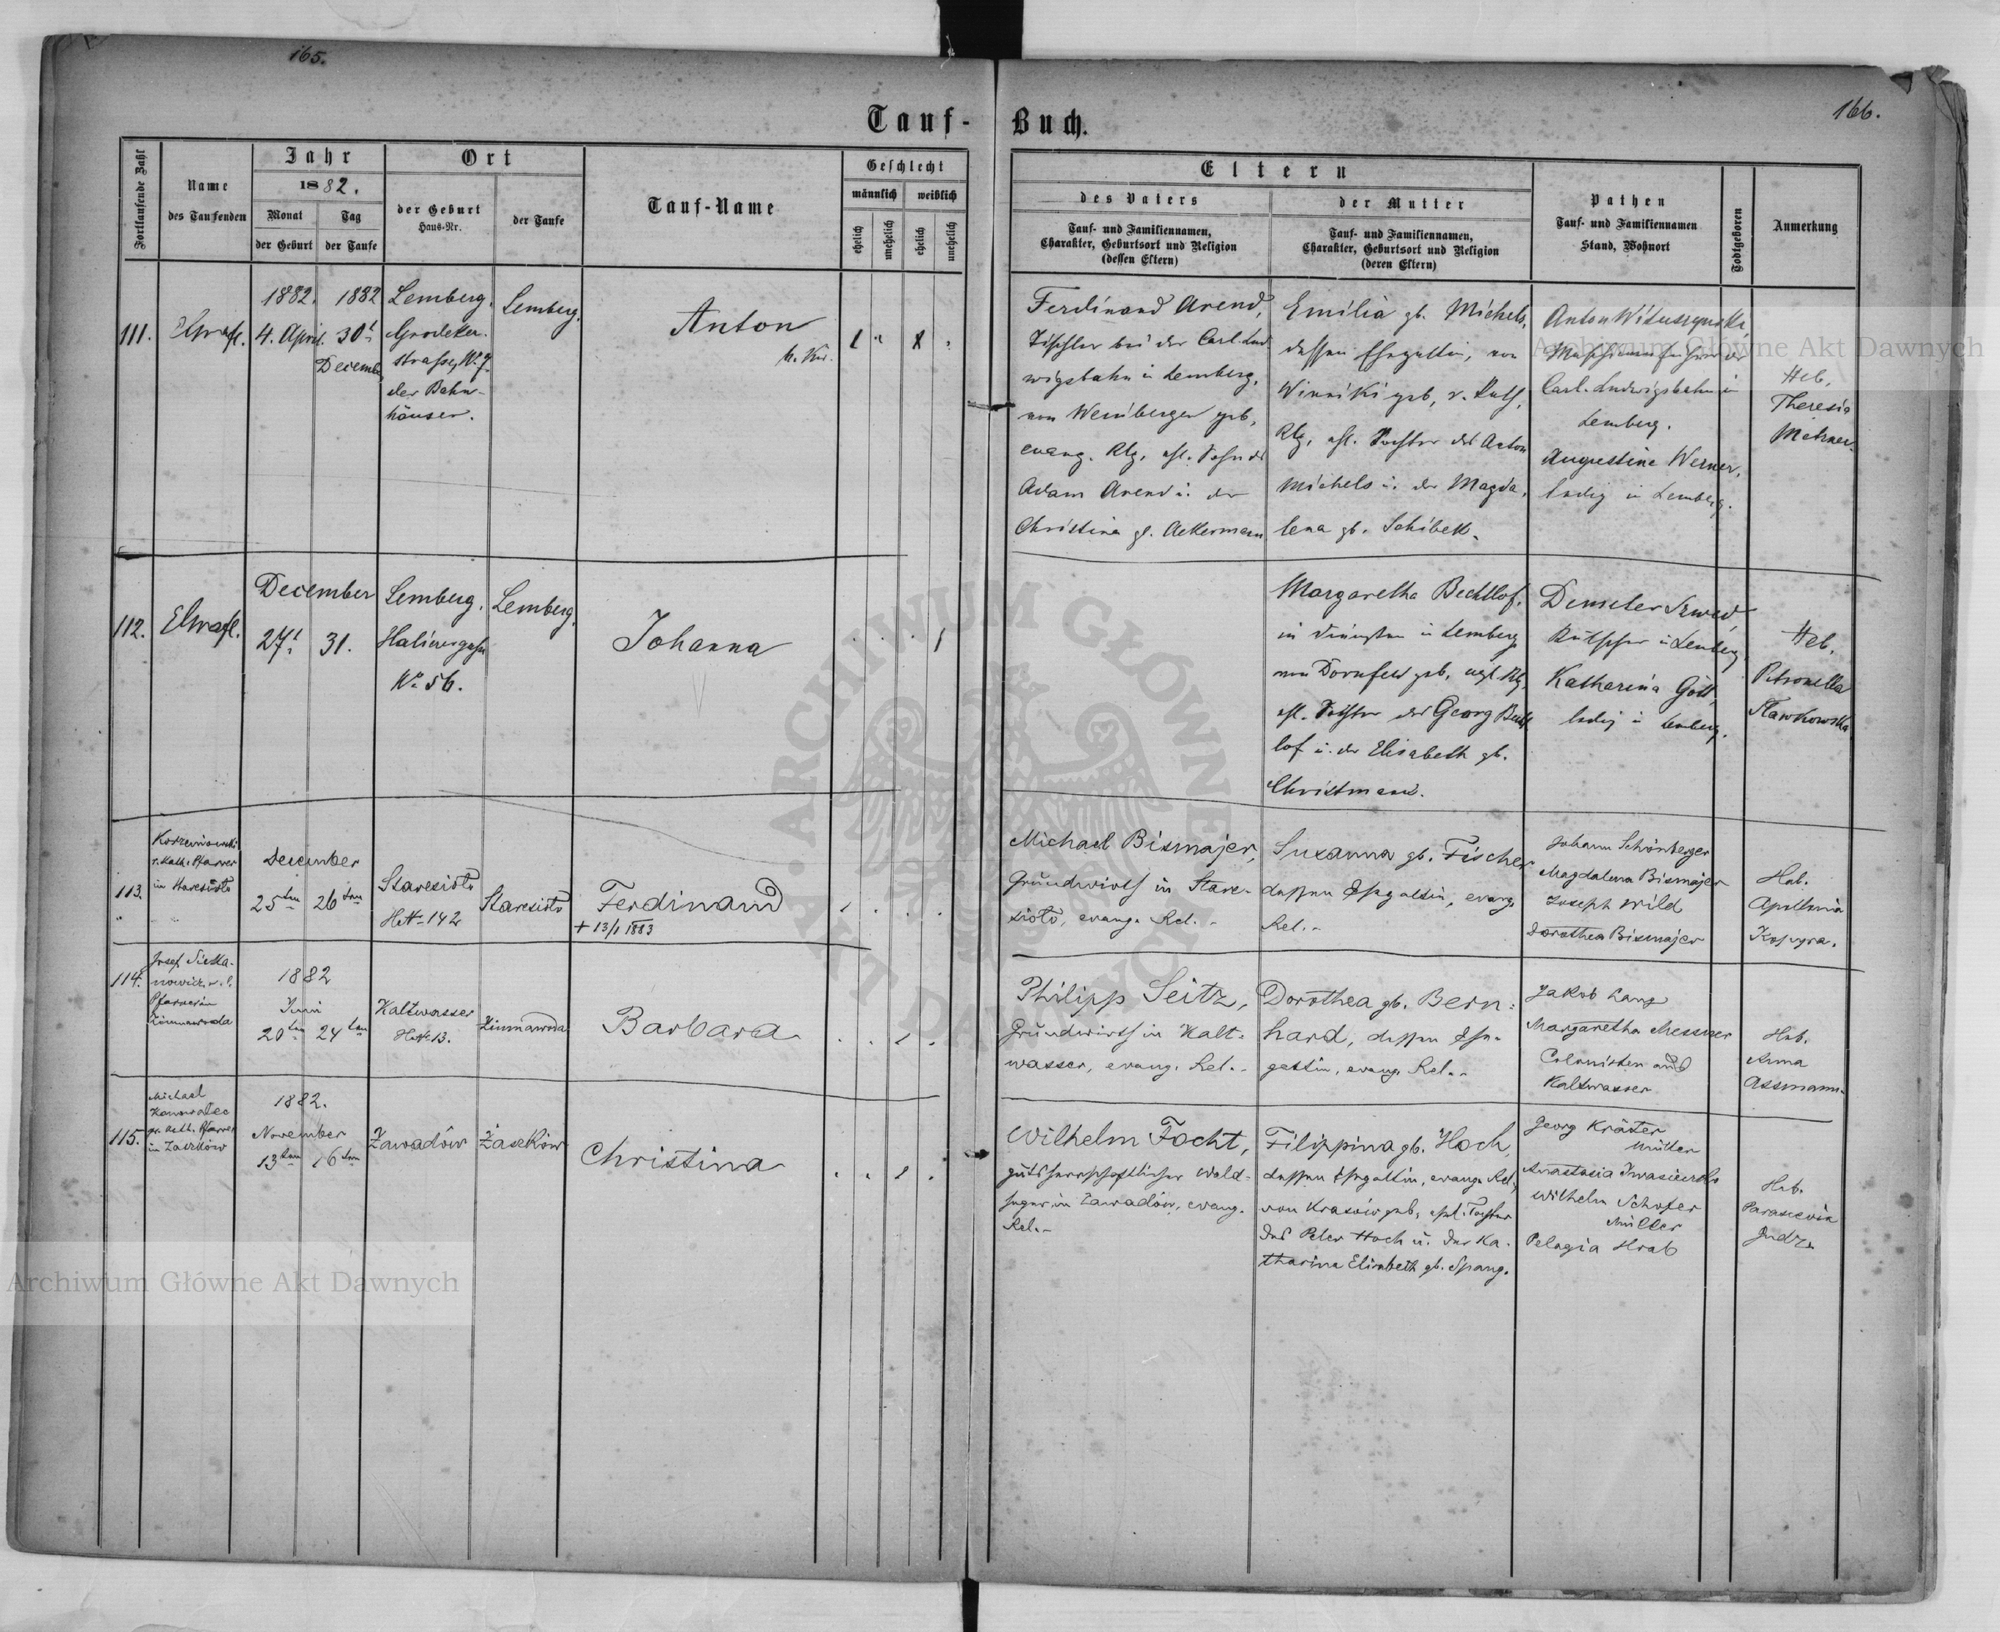 165.
166.
Tauf-Buch.
Fortlaufende Zahl
Name
des Taufenden
Jahr
1882.
Monat
der Geburt
Tag
der Taufe
Ort
der Geburt
Haus-Nr.
der Taufe
Tauf-Name
Geschlecht
männlich
weiblich
ehelich
unehelich
ehelich
unehelich
Eltern
des Vaters
Tauf- und Familiennamen,
Charakter, Geburtsort und Religion
(dessen Eltern)
der Mutter
Tauf- und Familiennamen,
Charakter, Geburtsort und Religion
(deren Eltern)
Pathen
Tauf- und Familiennamen
Stand, Wohnort
Todtgeboren
Anmerkung
111.
1882. 1882
4. April. 30t
December
Lemberg.
Grodeker-
strasse, No 7
der Bahn-
häuser.
Lemberg.
Anton
Ferdinand Arend,
Tischler bei der Carl Lud
wigsbahn in Lemberg,
von Weinbergen geb,
evang. Rlg, ehl. Sohn des
Adam Arend u. der
Christina gb. Ackermann
Emilia gb. Michels,
dessen Ehegattin, von
Winniki geb, r. kath.
Rlg, ehl. Tochter des Anton
Michels u. der Magda-
lena gb. Schibek.
Anton Wituszynski
Maschinenführer der
Carl-Ludwigsbahn in
Lemberg.
Augustine Werner,
ledig in Lemberg.
Heb.
Theresia
112.
December
27t 31.
Lemberg.
No 56.
Lemberg.
Johanna
Margaretha Bechtlof,
in Diensten in Lemberg
von Dornfeld geb, evgl. Rlg,
ehl. Tochter des Georg Becht
lof u. der Elisabeth gb.
Christmann.
Demeter Szwed,
Kutscher in Lemberg,
Katharina Gött,
ledig in Lemberg.
Heb.
Petronella
Slawkowska
113.
r. kath. Pfarrer
in Staresioło
December
25ten 26ten
Staresioło
H.No 142
Staresioło
Ferdinand
+ 13/1 1883
Michael Bismajer,
Grundwirth in Stare-
sioło, evang. Rel.-
Susanna gb. Fischer
dessen Ehegattin, evang.
Rel.-
Johann Schönberger
Magdalena Bismajer
Joseph Wild
Dorothea Bismajer
Heb.
Apollonia
114.
Josef
Pfarrer in
Zimnawoda
1882
Juni
20ten 24ten
Kaltwasser
H.No 13.
Zimnawoda
Barbara
Philipp Seitz,
Grundwirth in Kalt-
wasser, evang. Rel.-
Dorothea gb. Bern-
hard, dessen Ehe-
gattin, evang. Rel.-
Jakob Lang
Margaretha Messner
Colonisten aus
Kaltwasser
Heb.
Anna
Assmann.
115.
Michael
gr. kath. Pfarrer
in Zaszków
1882.
November
13ten 16ten
Zawadów
Zaszków
Christina
Wilhelm Focht,
gutsherrschaftlicher Wald-
heger in Zawadów, evang.
Rel.-
Filippina gb. Hoch,
dessen Ehegattin, evang. Rel.,
von Krasów geb, ehl. Tochter
des Peter Hoch u. der Ka-
tharina Elisabeth gb. Spang.
Georg Kräuter
Müller
Anastasia
Wilhelm Schofer
Müller
Pelagia Hrab
Heb.
Parascevia
Archiwum Główne Akt Dawnych
Archiwum Główne Akt Dawnych
ARCHIWUM GŁÓWNE AKT DAWNYCH